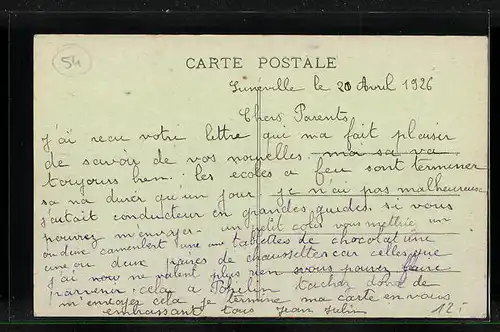 54
CARTE POSTALE
Lunéville le 20 Avril 1926
Chers Parents
J'ai recu votre lettre qui ma fait plaisir
de savoir de vos nouvelles moi sa va
toujours bien. les ecoles a feu sont terminer
sa na durer qu'un jour je n'ai pas malheureux
j'aitait conducteur en grandes guides. si vous
pourrez m'envoyer un petit colis vous mettrée un
ou deux camenbert une ou tablettes de chocolat une
une ou deux paires de chaussettes car celles que
j'ai nou ne valent plus rien vous pouvez faire
parvenir cela a tachez donc de
m'envoyez cela je termine ma carte en vous
embrassant tous Jean Julien
12.-